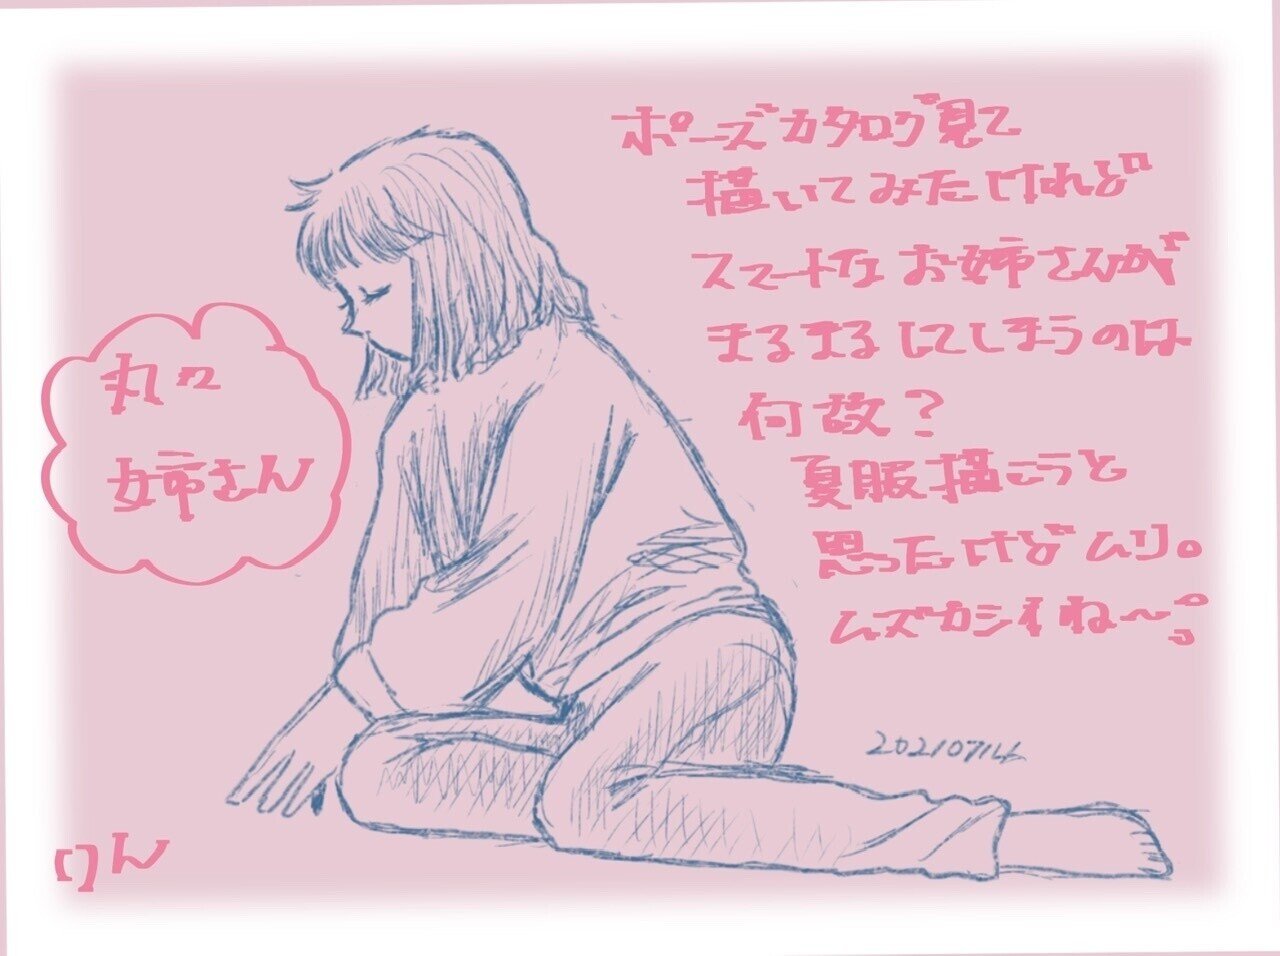 ポーズカタログ見て
描いてみたけれど
スマートなお姉さんが
まるまるにしてしまうのは
何故？
夏服描こうと
思ったけどムリ。
ムズカシイね〜。
丸々
姉さん
りん